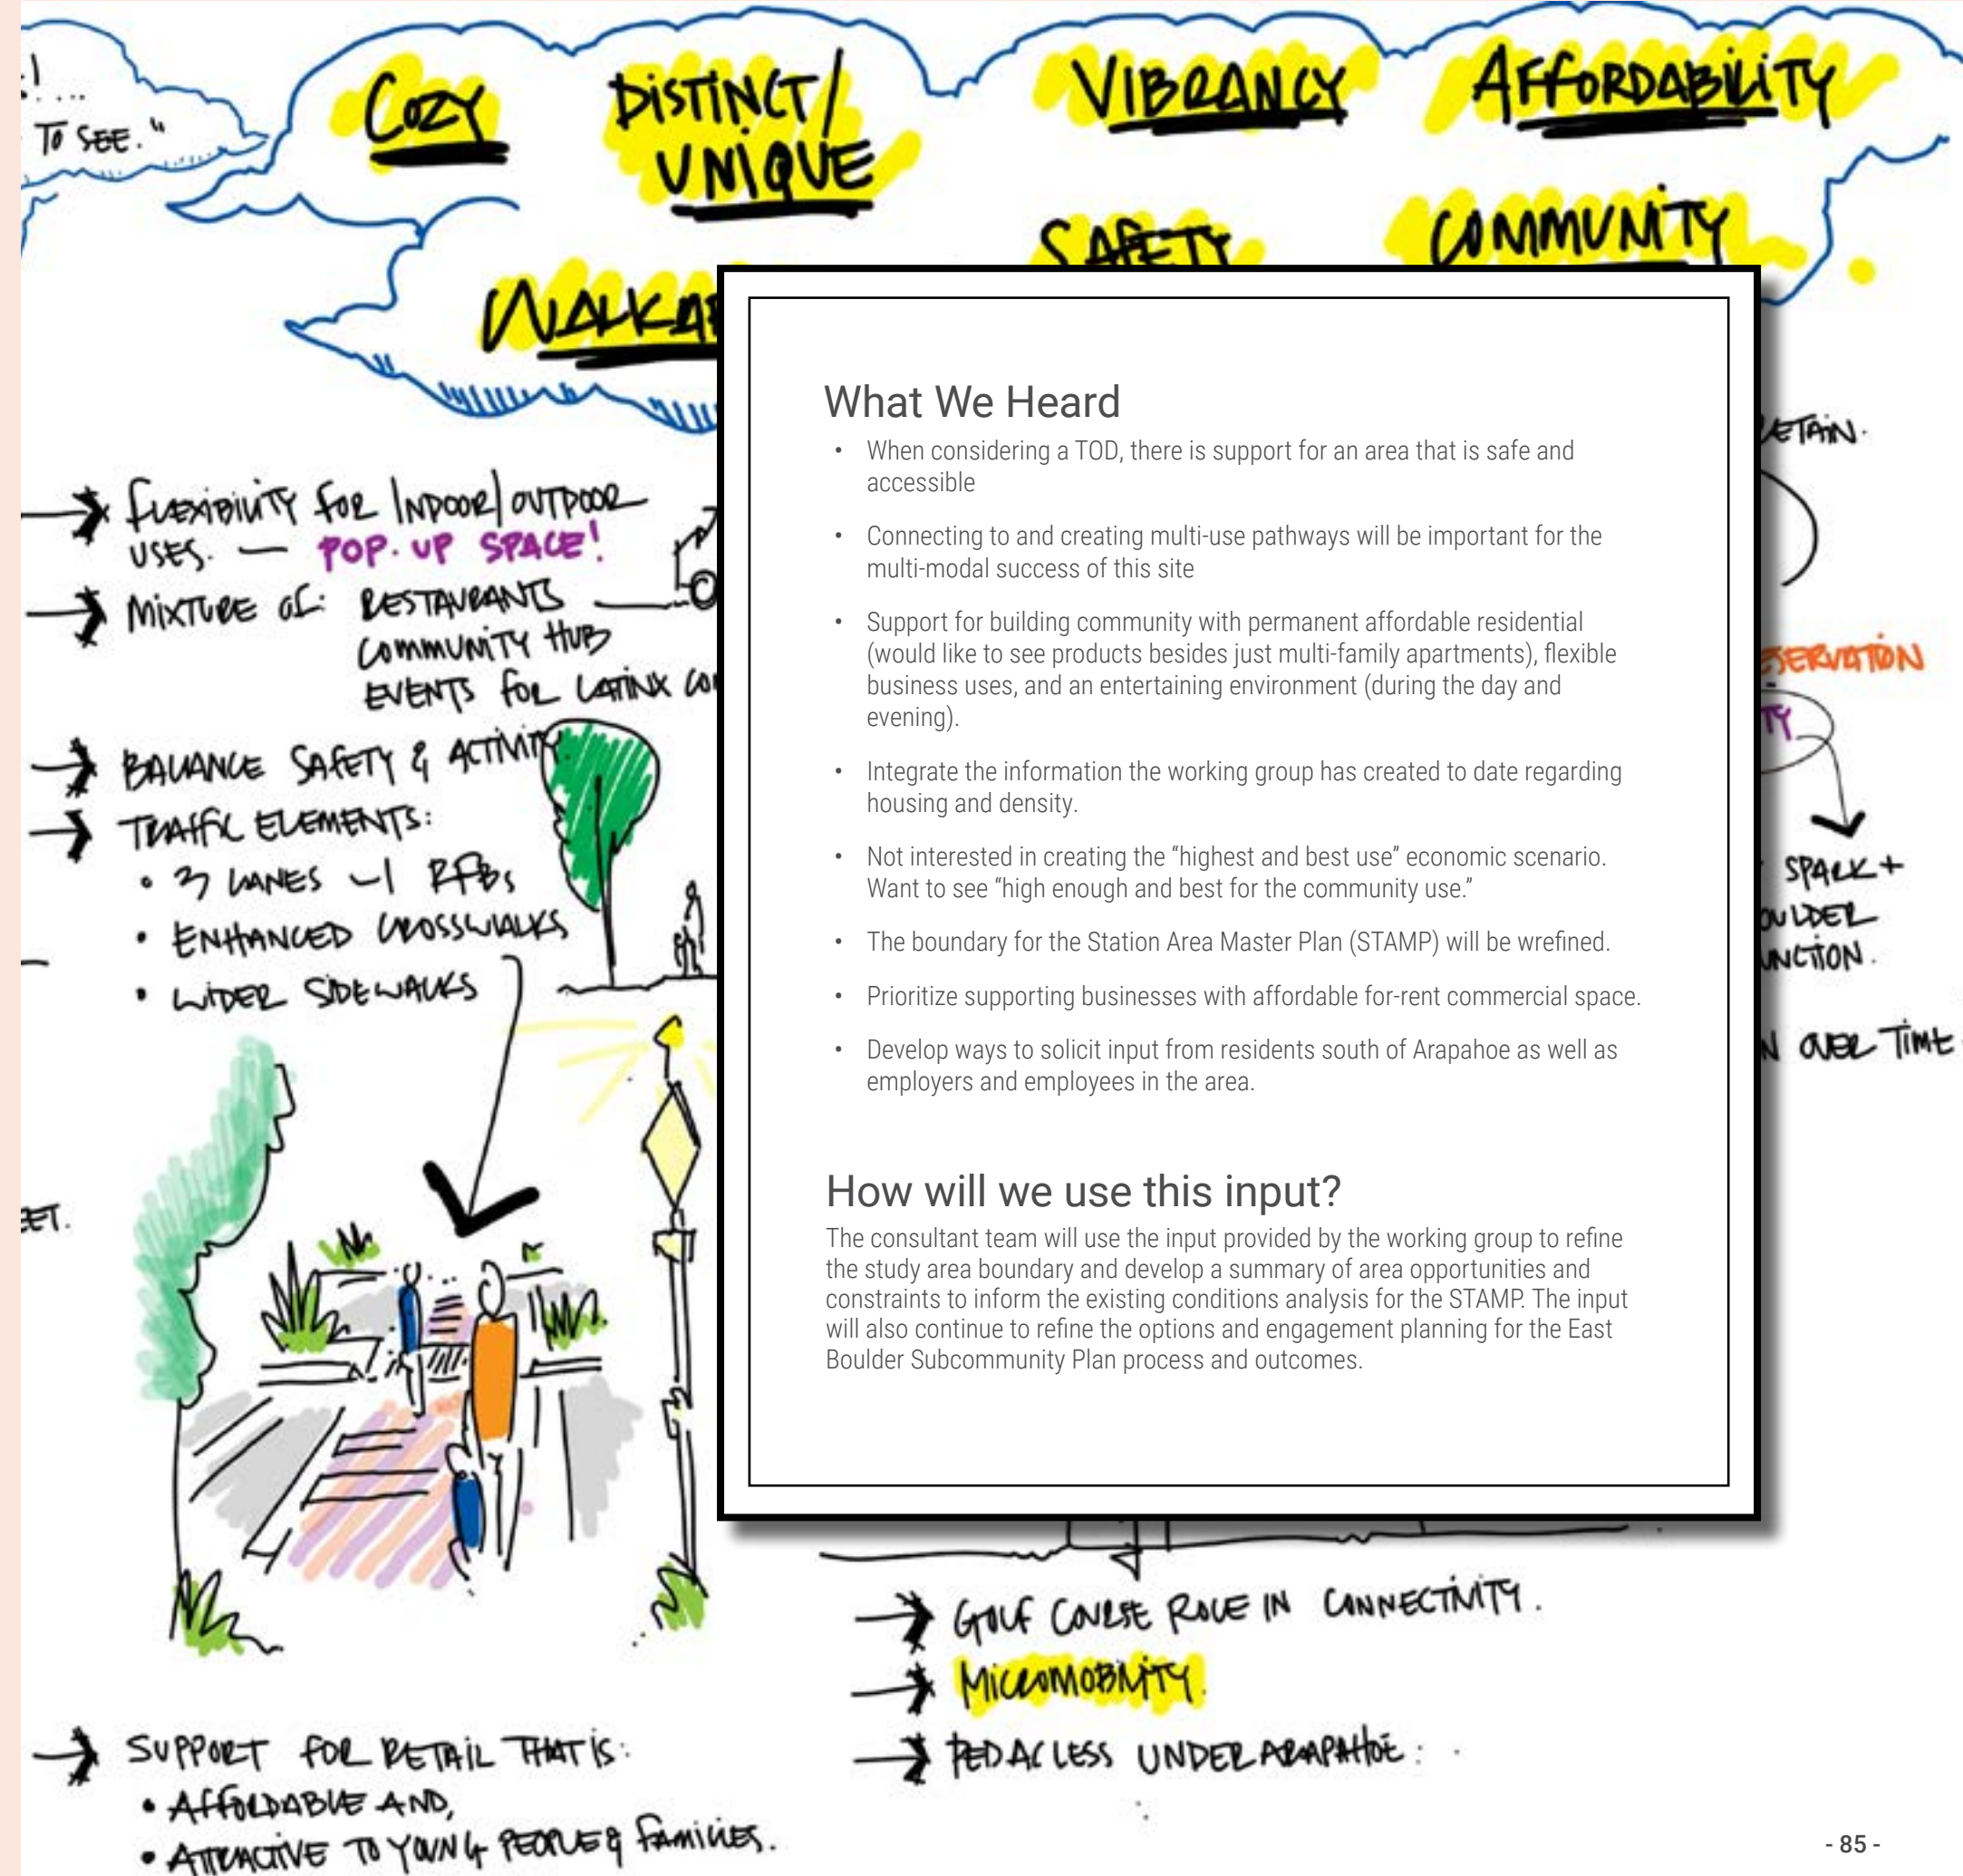 ! ...
TO SEE."
COZY
DISTINCT/
UNIQUE
VIBRANCY
AFFORDABILITY
SAFETY
COMMUNITY
WALKAB
FLEXIBILITY FOR INDOOR/OUTDOOR
USES. — POP.UP SPACE!
MIXTURE OF: RESTAURANTS
COMMUNITY HUB
EVENTS FOR LATINX CO
BALANCE SAFETY & ACTIVITY.
TRAFFIC ELEMENTS:
• 3 LANES
• ENHANCED CROSSWALKS
• WIDER SIDEWALKS
EET.
What We Heard
• When considering a TOD, there is support for an area that is safe and
accessible
• Connecting to and creating multi-use pathways will be important for the
multi-modal success of this site
• Support for building community with permanent affordable residential
(would like to see products besides just multi-family apartments), flexible
business uses, and an entertaining environment (during the day and
evening).
• Integrate the information the working group has created to date regarding
housing and density.
• Not interested in creating the “highest and best use” economic scenario.
Want to see “high enough and best for the community use.”
• The boundary for the Station Area Master Plan (STAMP) will be wrefined.
• Prioritize supporting businesses with affordable for-rent commercial space.
• Develop ways to solicit input from residents south of Arapahoe as well as
employers and employees in the area.
How will we use this input?
The consultant team will use the input provided by the working group to refine
the study area boundary and develop a summary of area opportunities and
constraints to inform the existing conditions analysis for the STAMP. The input
will also continue to refine the options and engagement planning for the East
Boulder Subcommunity Plan process and outcomes.
ETAIN.
SERVATION
TY
SPARK +
OULDER
UNCTION.
N OVER TIME
GOLF COURSE ROLE IN CONNECTIVITY.
MICROMOBILITY.
PED ACCESS UNDER ARAPAHOE.
SUPPORT FOR RETAIL THAT IS:
• AFFORDABLE AND,
• ATTRACTIVE TO YOUNG PEOPLE & FAMILIES.
- 85 -